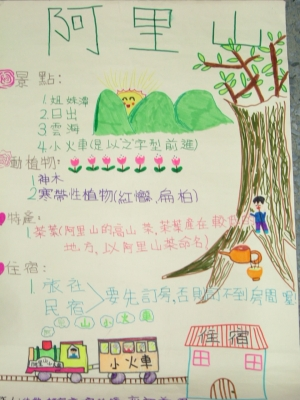 阿里山
景點:
1姐妹潭
2日出
3雲海
4小火車(是以之字型前進)
動植物:
1神木
2寒帶性植物(紅檜、扁柏)
特產:
1茶葉(阿里山的高山茶,茶葉產在較
地方、以阿里山茶命名)
住宿:
1旅社
民宿
要先訂房,否則訂不到房間
山小火車
小火車
住宿